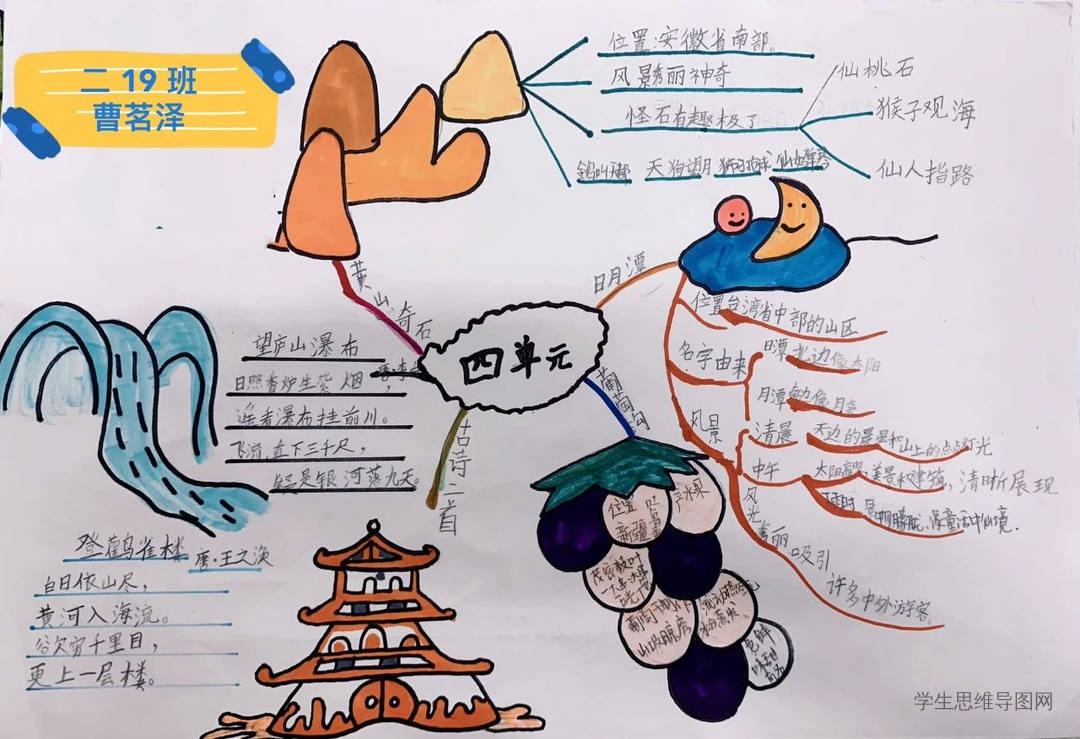 二 19 班
曹茗泽
四单元
黄山奇石
位置:安徽省南部。
风景秀丽神奇
怪石有趣极了
仙桃石
猴子观海
仙人指路
天狗望月
日月潭
位置台湾省中部的山区
名字由来
日潭北边像太阳
月潭
风景
清晨
天边的晨星和山上的点点灯光
中午
太阳高照,美景和建筑,清晰展现
下雨时
风光秀丽吸引
许多中外游客。
葡萄沟
位置
新疆
古诗二首
望庐山瀑布
日照香炉生紫烟,
遥看瀑布挂前川。
飞流直下三千尺,
是银河落九天。
登鹳雀楼
唐·王之涣
白日依山尽,
黄河入海流。
欲穷千里目,
更上一层楼。
学生思维导图网